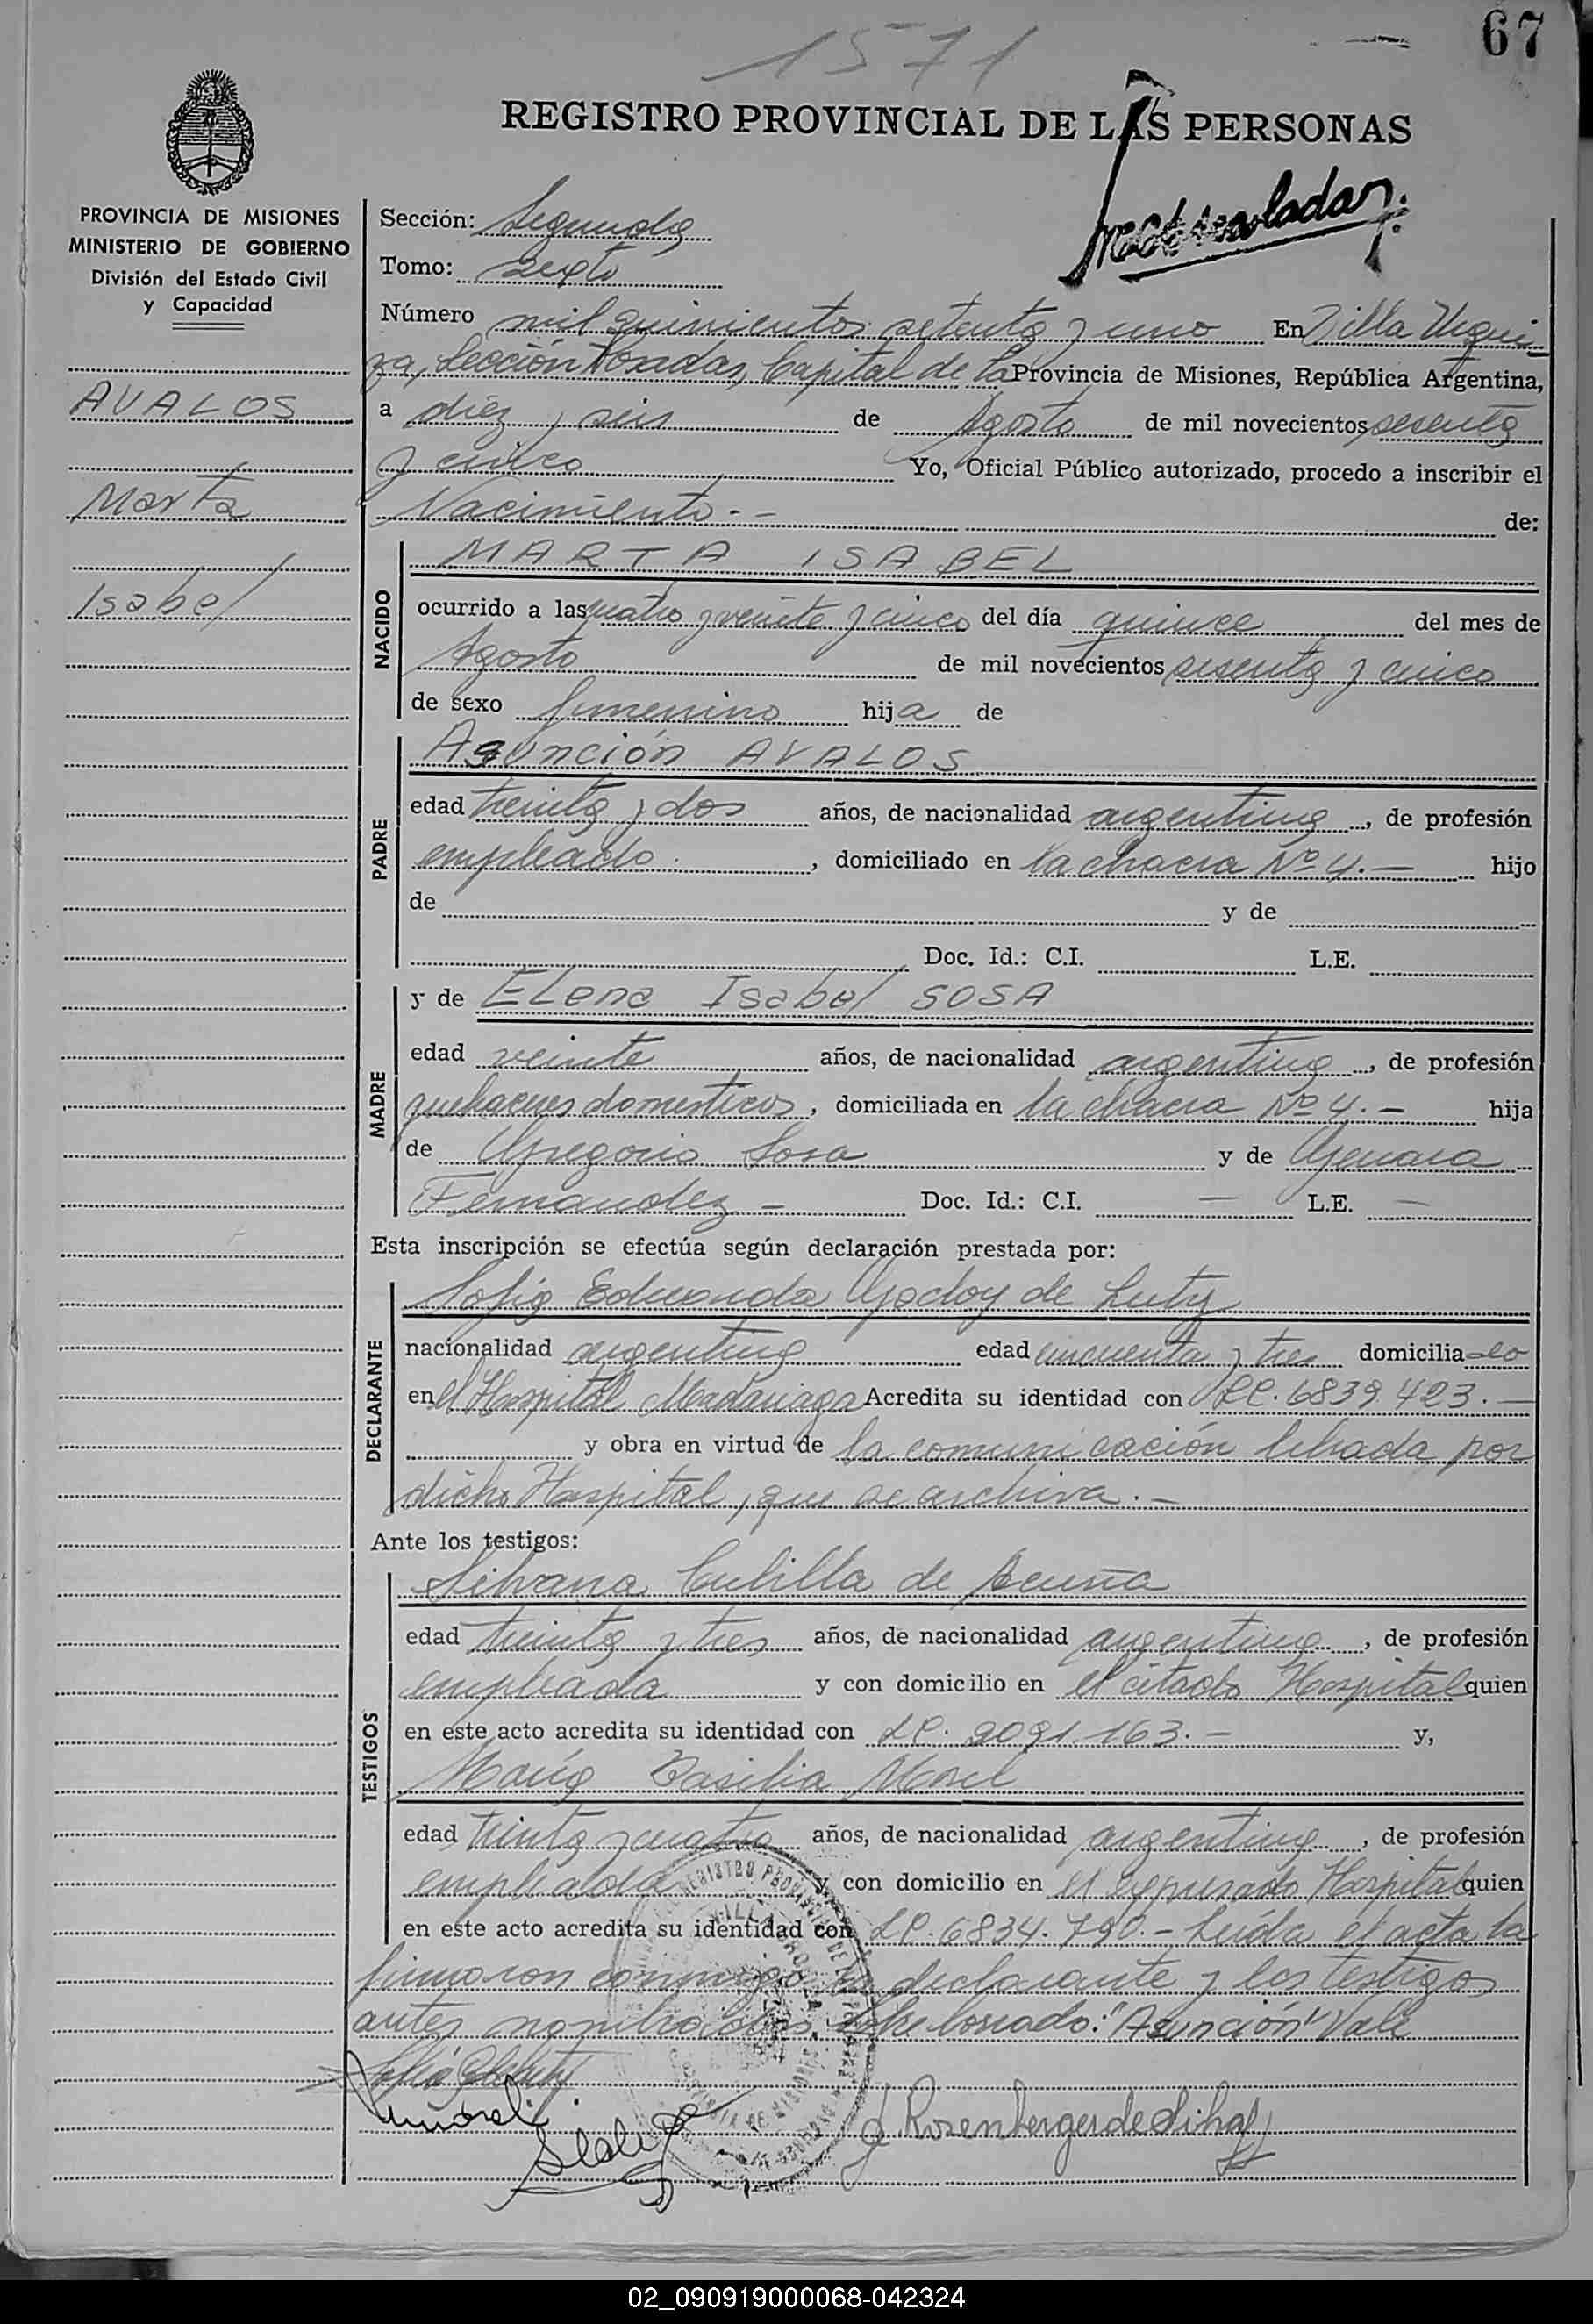 67
1571
REGISTRO PROVINCIAL DE LAS PERSONAS
PROVINCIA DE MISIONES
MINISTERIO DE GOBIERNO
División del Estado Civil
y Capacidad
AVALOS
Marta
Isabel
Sección: Segunda
Tomo: Sexto
Número mil quinientos setenta y uno En Villa Urqui-
za, Sección Posadas, Capital de la Provincia de Misiones, República Argentina,
a diez y seis de Agosto de mil novecientos sesenta
y cinco Yo, Oficial Público autorizado, procedo a inscribir el
Nacimiento.- de:
NACIDO
MARTA ISABEL
ocurrido a las cuatro y veinte y cinco del día quince del mes de
Agosto de mil novecientos sesenta y cinco
de sexo femenino hija de
PADRE
Asunción AVALOS
edad treinta y dos años, de nacionalidad argentina, de profesión
empleado, domiciliado en la chacra Nº 4.- hijo
de y de
Doc. Id.: C.I. L.E.
MADRE
y de Elena Isabel SOSA
edad veinte años, de nacionalidad argentina, de profesión
quehaceres domesticos, domiciliada en la chacra Nº 4.- hija
de Gregorio Sosa y de Genara
Fernandez - Doc. Id.: C.I. - L.E. -
Esta inscripción se efectúa según declaración prestada por:
DECLARANTE
Sofia Eduarda Godoy de Luty
nacionalidad argentina edad cincuenta y tres domiciliado
en el Hospital Madariaga Acredita su identidad con LC. 6839.423.-
y obra en virtud de la comunicación librada por
dicho Hospital, que se archiva.-
Ante los testigos:
TESTIGOS
Silvana Cubilla de Acuña
edad treinta y tres años, de nacionalidad argentina, de profesión
empleada y con domicilio en el citado Hospital quien
en este acto acredita su identidad con LC. 9091.163.- y,
María Basilia Morel
edad treinta y cuatro años, de nacionalidad argentina, de profesión
empleada y con domicilio en el expresado Hospital quien
en este acto acredita su identidad con LC. 6834.790.- Leída el acta la
firmaron conmigo la declarante y los testigos
antes nombrados. Sobre borrado: "Asunción" Vale
02_090919000068-042324